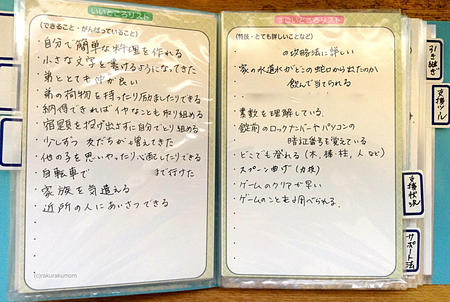 いいところリスト
(できること・がんばっていること)
・自分で簡単な料理を作れる
・小さな文字を書けるようになってきた
・弟ととても仲が良い
・弟の荷物を持ったり励ましたりできる
・納得できればイヤなことも取り組める
・宿題を投げ出さずに自分で取り組める
・少しずつ友だちが増えてきた
・他の子を思いやったり、心配したりできる
・自転車で まで行けた
・家族を気遣える
・近所の人にあいさつできる
(c)rakurakumom
すごいところリスト
(特技・とても詳しいことなど)
・の攻略法に詳しい
・家の水道水がどこの蛇口から出たのか
飲んで当てられる
・素数を理解している
・錠前のロックナンバーやパソコンの
暗証番号を覚えている
・どこでも登れる(木、棒・柱、人など)
・スプーン曲げ(力技)
・ゲームのクリアが早い
・ゲームのことをよく調べられる。
引き継ぎ
支援ツール
支援状況
サポート法